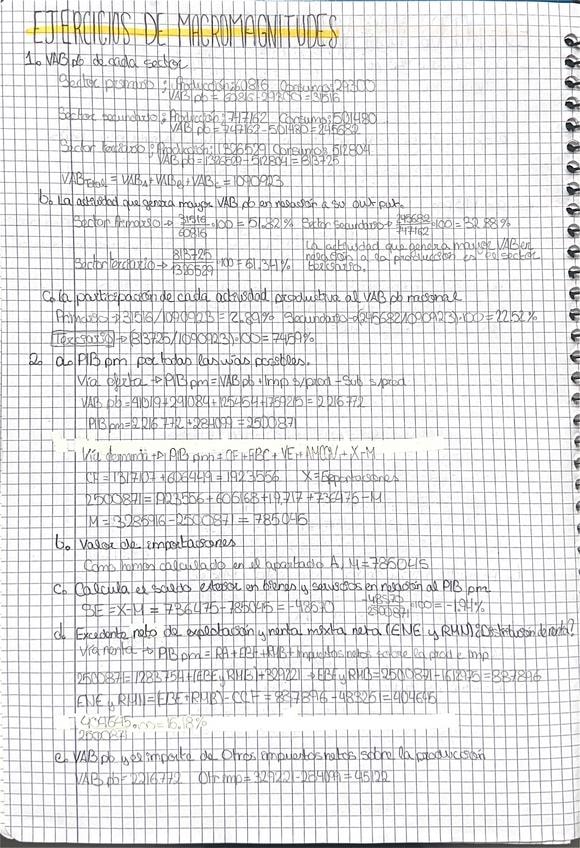 EJERCICIOS DE MACROMAGNITUDES
1. VAB pb de cada sector
Sector primario: Producción: 60816 Consumo: 29300
VAB pb = 60816 - 29300 = 31516
Sector secundario: Producción: 747162 Consumo: 501480
VAB pb = 747162 - 501480 = 245682
Sector terciario: Producción: 1326529 Consumo: 512804
VAB pb = 1326529 - 512804 = 813725
VAB Total = VAB + VAB + VAB = 1090923
b. La actividad que genera mayor VAB pb en relación a su output.
Sector Primario → 31516/60816 · 100 = 51.82% Sector secundario → 245682/747162 · 100 = 32.88%
Sector terciario → 813725/1326529 · 100 = 61.34% La actividad que genera mayor VAB en relación a la producción es el sector terciario.
c. La participación de cada actividad productiva al VAB pb nacional
Primario → 31516/1090923 = 2.89% Secundario → (245682/1090923) · 100 = 22.52%
Terciario → (813725/1090923) · 100 = 74.59%
2. a. PIB pm por todas las vías posibles.
Vía oferta → PIB pm = VAB pb + Imp s/prod - Sub s/prod
VAB pb = 41019 + 291084 + 125454 + 1759215 = 2216772
PIB pm = 2216772 + 284099 = 2500871
Vía demanda → PIB pm = CF + FBC + VE + AMOOV + X - M
CF = 1317107 + 606449 = 1923556 X = Exportaciones
2500871 = 1923556 + 606168 + 19.717 + 736475 - M
M = 3285916 - 2500871 = 785045
b. Valor de importaciones
Como hemos calculado en el apartado A, M = 785045
c. Calcula el saldo exterior en bienes y servicios en relación al PIB pm
SE = X - M = 736475 - 785045 = -48570 -48570/2500871 · 100 = -1.94%
d. Excedente neto de explotación y renta mixta neta (ENE y RMN) ¿Distribución de renta?
Vía renta → PIB pm = RA + EBE + RMB + Impuestos netos sobre la prod e imp
2500871 = 1283754 + (EBE y RMB) + 329221 → EBE y RMB = 2500871 - 1612975 = 887896
ENE y RMN = (EBE + RMB) - CCF = 887896 - 483251 = 404645
404645/2500871 · 100 = 16.18%
e. VAB pb y el importe de Otros impuestos netos sobre la producción
VAB pb = 2216772 Otr imp = 329221 - 284099 = 45122